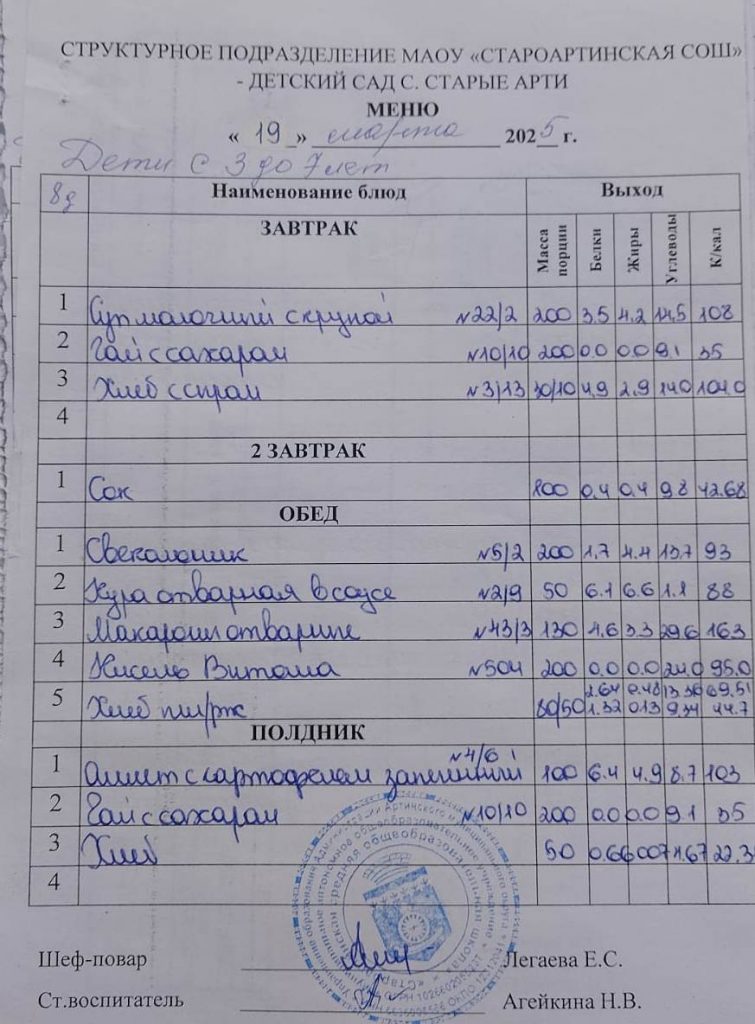 СТРУКТУРНОЕ ПОДРАЗДЕЛЕНИЕ МАОУ «СТАРОАРТИНСКАЯ СОШ»
- ДЕТСКИЙ САД С. СТАРЫЕ АРТИ
МЕНЮ
« 19 » марта 2025 г.
Дети с 3 до 7 лет
8д Наименование блюд Выход
ЗАВТРАК Масса порции Белки Жиры Углеводы К/кал
1 Суп молочный с крупой №22/2 200 3,5 4,2 14,5 108
2 Чай с сахаром №10/10 200 0.0 0.0 9.1 35
3 Хлеб с сыром №3/13 30/10 4,9 2.9 14.0 104.0
4
2 ЗАВТРАК
1 Сок 0.4 0.4 9.8 42.68
ОБЕД
1 Свекольник №5/2 200 1.7 4.4 13.7 93
2 Кура отварная в соусе №2/9 50 6.1 6.6 1.1 88
3 Макароны отварные №43/3 130 4.6 3.3 29.6 163
4 Кисель Витошка №504 200 0.0 0.0 24.0 95.0
5 Хлеб пш/рж 2.64 0.48 13.36 69.51
/50 1.32 0.13 9.34 44.7
ПОЛДНИК
1 Омлет с картофелем запеченный №4/6 100 6.4 4.9 8.7 103
2 Чай с сахаром №10/10 200 0.0 0.0 9.1 35
3 Хлеб 50 0.66 0.07 4.67 22.3
4
Шеф-повар Легаева Е.С.
Ст.воспитатель Агейкина Н.В.